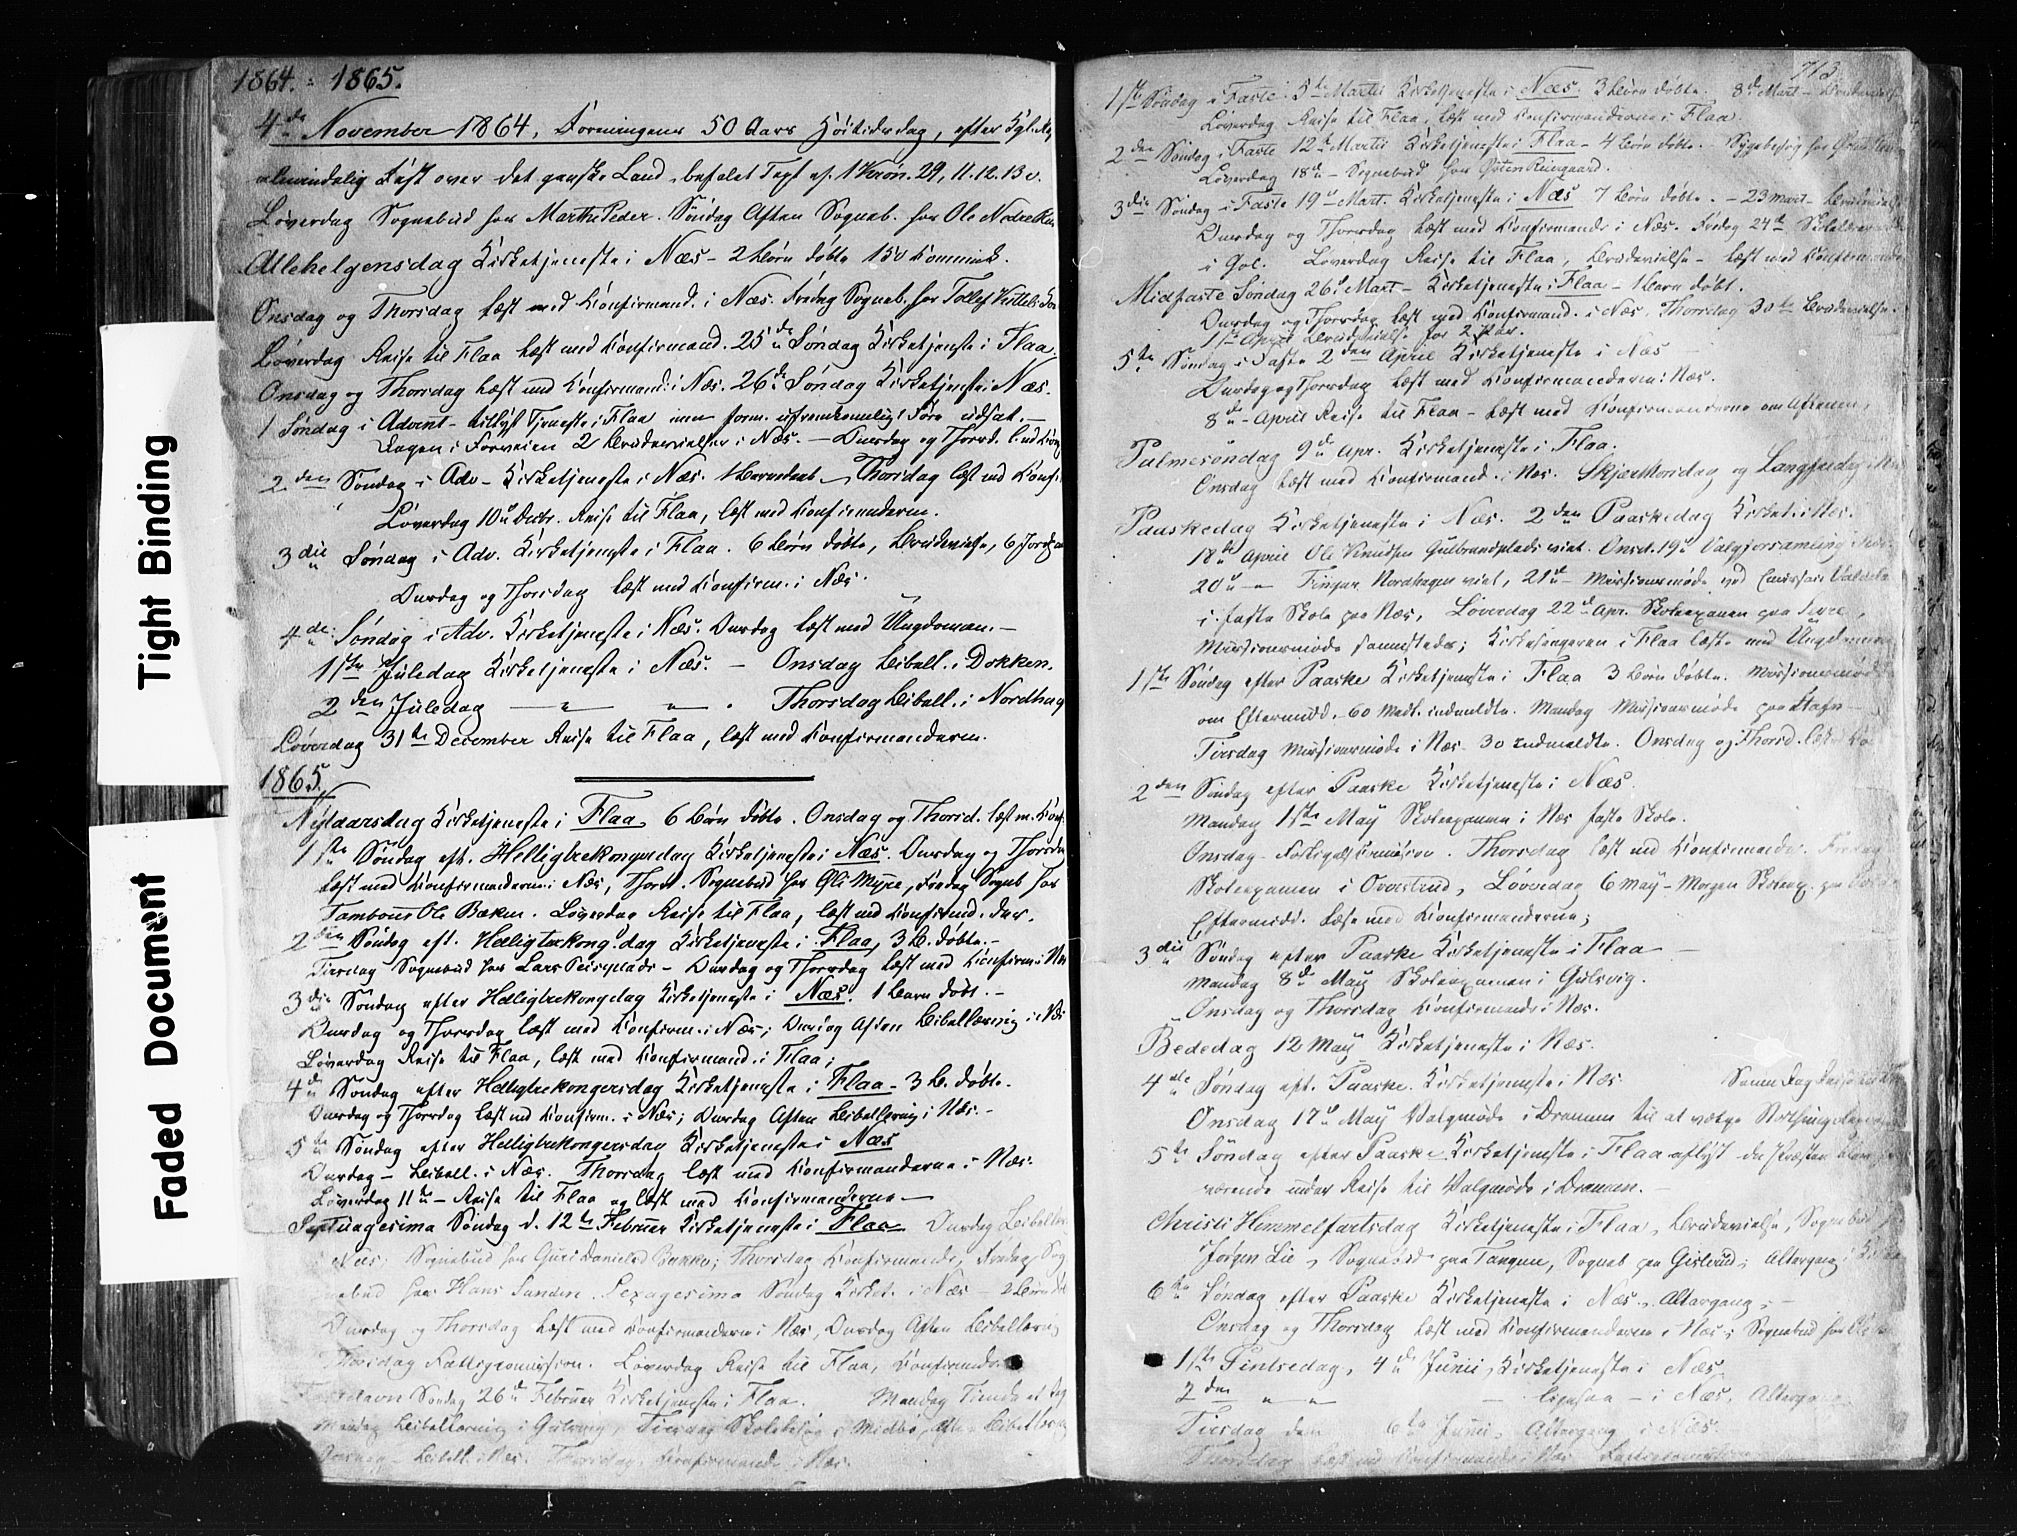 Tight Binding
Faded Document
1864. : 1865.
4de November 1864, Foreningens 50 Aars Høitidsdag, efter Kgl.
almindelig Fest over det ganske Land, befalet Text af 1 Krøn. 29, 11. 12. 13 v.
Løverdag Sognebud hos Marthe Peder. Søndag Aften Sogneb. hos Ole
Allehelgensdag Kirketjeneste i Næs - 2 Børn døbte
Onsdag og Thorsdag læst med Konfirmand. i Næs. Fredag Sogneb. hos Tollef
Løverdag Reise til Flaa læst med Konfirmand. 25de Søndag Kirketjeneste i Flaa.
Onsdag og Thorsdag læst med Konfirmand. i Næs. 26de Søndag Kirketjeneste i Næs.
1 Søndag i Advent - tillyst Tjeneste i Flaa men form. ufremkommeligt Føre udsat. -
Dagen i Forveien 2 Brudevielser i Næs. - Onsdag og Thorsd. l. md
2den Søndag i Adv - Kirketjeneste i Næs. 1 Barn døbt - Thorsdag læst md Konfi
Løverdag 10de Decbr. Reise til Flaa, læst med Konfirmanderne.
3die Søndag i Adv. Kirketjeneste i Flaa. 6 Børn døbte, Brudevielse, 6
Onsdag og Thorsdag læst med Konfirm. i Næs.
4de Søndag i Adv. Kirketjeneste i Næs. Onsdag læst med Ungdommen. -
1ste Juledag Kirketjeneste i Næs. - Onsdag Bibell. i Dokken.
2den Juledag - " - " - . Thorsdag Bibell. i Nordhag
Løverdag 31te December Reise til Flaa, læst med Konfirmanderne.
1865.
Nytaarsdag Kirketjeneste i Flaa, 6 Børn døbte. Onsdag og Thorsd. læst m. Konf.
1ste Søndag eft. Helligtrekongersdag Kirketjeneste i Næs. Onsdag og Thorsda
læst med Konfirmanderne i Næs, Thorsd. Sognebud hos Oli Myre, Fredag Sogneb hos
Tambour Ole Bæken. Løverdag Reise til Flaa, læst md Konfirmd. der.
2den Søndag eft. Helligtrekong.dag Kirketjeneste i Flaa, 3 B. døbte. -
Tirsdag Sognebud hos Lars - Onsdag og Thorsdag læst med Konfirm. i Næs
3die Søndag efter Helligtrekongdag Kirketjeneste i Næs. 1 Barn døbt. -
Onsdag og Thorsdag læst med Konfirm. i Næs; Onsdag Aften Bibellæsning i Næs
Løverdag Reise til Flaa, læst med Konfirmand. i Flaa;
4de Søndag efter Helligtrekongersdag Kirketjeneste i Flaa - 3 B. døbte.
Onsdag og Thorsdag læst md Konfirm. i Næs; Onsdag Aften Bibellæsning i Næs. -
5te Søndag efter Helligtrekongersdag Kirketjeneste i Næs
Onsdag - Bibell. i Næs. Thorsdag læst med Konfirmanderne i Næs.
Løverdag 11te - Reise til Flaa og læst med Konfirmanderne -
Septuagesima Søndag d. 12te Februar Kirketjeneste i Flaa. Onsdag Bibellæs
i Næs. Sognebud hos Guri Danielsd Bakke; Thorsdag Konfirmande, Fredag Sog
nebud hos Hans Sunden. Sexagesima Søndag Kirket. i Næs - 2 Børn døb
Onsdag og Thorsdag læst med Konfirmanderne i Næs, Onsdag Aften Bibellæsning
Thorsdag Fattigcommission. Løverdag Reise til Flaa, Konfirmande
Fastelavn Søndag 26de Februar Kirketjeneste i Flaa. Mandag
Mandag Bibellæsning i Gulsvig, Tirsdag Skolebesøg i Midbø, Aften Bibellæsning
Onsdag - Bibell. i Næs. Thorsdag, Konfirmande i Næs.
713
1ste Søndag i Faste 5te Martii Kirketjeneste i Næs. 3 Børn døbte. 8de Mart - Brudevielse
Løverdag Reise til Flaa, læst med Konfirmanderne i Flaa.
2den Søndag i Faste 12te Martii Kirketjeneste i Flaa - 4 Børn døbte. - Sygebesøg hos
Løverdag 18de - Sognebud hos Østen Ringgaard.
3die Søndag i Faste 19de Mart. Kirketjeneste i Næs 7 Børn døbte. - 23 Mart - Brudevielse
Onsdag og Thorsdag læst med Konfirmande i Næs. Fredag 24de
i Gol. Løverdag Reise til Flaa, Brudevielse - læst med Konfirmande
Midfaste Søndag 26de Mart - Kirketjeneste i Flaa - 1 Barn døbt.
Onsdag og Thorsdag læst med Konfirmand. i Næs, Thorsdag 30te Brudevielse.
1ste April Brudevielse for 2 Par.
5te Søndag i Faste 2den April Kirketjeneste i Næs
Onsdag og Thorsdag læst med Konfirmanderne i Næs.
8de April Reise til Flaa - læst med Konfirmanderne om Aftenen,
Palmesøndag 9de Apr. Kirketjeneste i Flaa.
Onsdag læst med Konfirmand. i Næs. Skjærthorsdag og Langfredag i Næs
Paaskedag Kirketjeneste i Næs. 2den Paaskedag Kirket. i Næs.
18de April Ole Knudsen Gulbrandsplads viet. Onsd. 19de Valgforsamling
20de - Finger Nordhagen viet, 21de - Missionsmøde ved Emissair
i faste Skole paa Næs, Løverdag 22de Apr. Skoleexamen paa
Missionsmøde sammesteds; Kirkesangeren i Flaa læste med Ungdommen
1ste Søndag efter Paaske Kirketjeneste i Flaa 3 Børn døbte. Missionsmøde
om Eftermidd. 60 Medl. indmeldte. Mandag Missionsmøde paa Stafn -
Tirsdag Missionsmøde i Næs - 30 indmeldte. Onsdag og Thorsd. læst
2den Søndag efter Paaske Kirketjeneste i Næs.
Mandag 1ste May Skoleexamen i Næs faste Skole.
Onsdag - Forligelseskommission. Thorsdag læst md Konfirmande. Fredag
Skoleexamen i Overstrud, Løverdag 6 May - Morgen Skoleex. paa
Eftermidd. læse med Konfirmanderne;
3die Søndag efter Paaske Kirketjeneste i Flaa -
Mandag 8de May Skoleexamen i Gulsvig.
Onsdag og Thorsdag Konfirmande i Næs.
Bededag 12 May Kirketjeneste i Næs.
4de Søndag eft. Paaske. Kirketjeneste i Næs. Samme Dag Reise
Onsdag 17de May Valgmøde i Dramen til at vælge
5te Søndag efter Paaske Kirketjeneste i Flaa aflyst da Præsten
værende under Reise til Valgmøde i Dramen. -
Christi Himmelfartsdag Kirketjeneste i Flaa, Brudevielse, Sognebud
Jørgen Lie, Sognebud paa Tangen, Sogneb paa Gislerud, Altergang i
6te Søndag efter Paaske Kirketjeneste i Næs, Altergang; -
Onsdag og Thorsdag læst med Konfirmanderne i Næs; Sognebud hos
1ste Pintsedag, 4de Junii, Kirketjeneste i Næs
2den " " - ligesaa - i Næs, Altergang
Tirsdag den 6te Junii, Altergang i Næs.
Thorsdag læst md Konfirmande i Næs